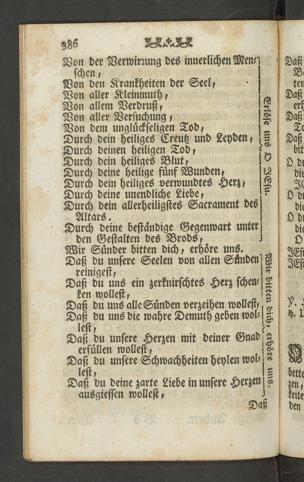 386
Von der Verwirnung des innerlichen Men-
schen,
Von den Krankheiten der Seel,
Von aller Kleinmuth,
Von allem Verdruß,
Von aller Versuchung,
Von dem unglückseligen Tod,
Durch dein heiliges Creutz und Leyden,
Durch deinen heiligen Tod,
Durch dein heiliges Blut,
Durch deine heilige fünf Wunden,
Durch dein heiliges verwundtes Hertz,
Durch deine unendliche Liebe,
Durch dein allerheiligstes Sacrament des
Altars.
Durch deine beständige Gegenwart unter
den Gestalten des Brods,
Erlöse uns O JEsu.
Wir Sünder bitten dich, erhöre uns.
Daß du unsere Seelen von allen Sünden
reinigest,
Daß du uns ein zerknirschtes Herz schen-
ken wollest,
Daß du uns alle Sünden verzeihen wollest,
Daß du uns die wahre Demuth geben wol-
lest,
Daß du unsere Herzen mit deiner Gnad
erfüllen wollest,
Daß du unsere Schwachheiten heylen wol-
lest,
Daß du deine zarte Liebe in unsere Herzen
ausgiessen wollest,
Wir bitten dich, erhöre uns.
Daß